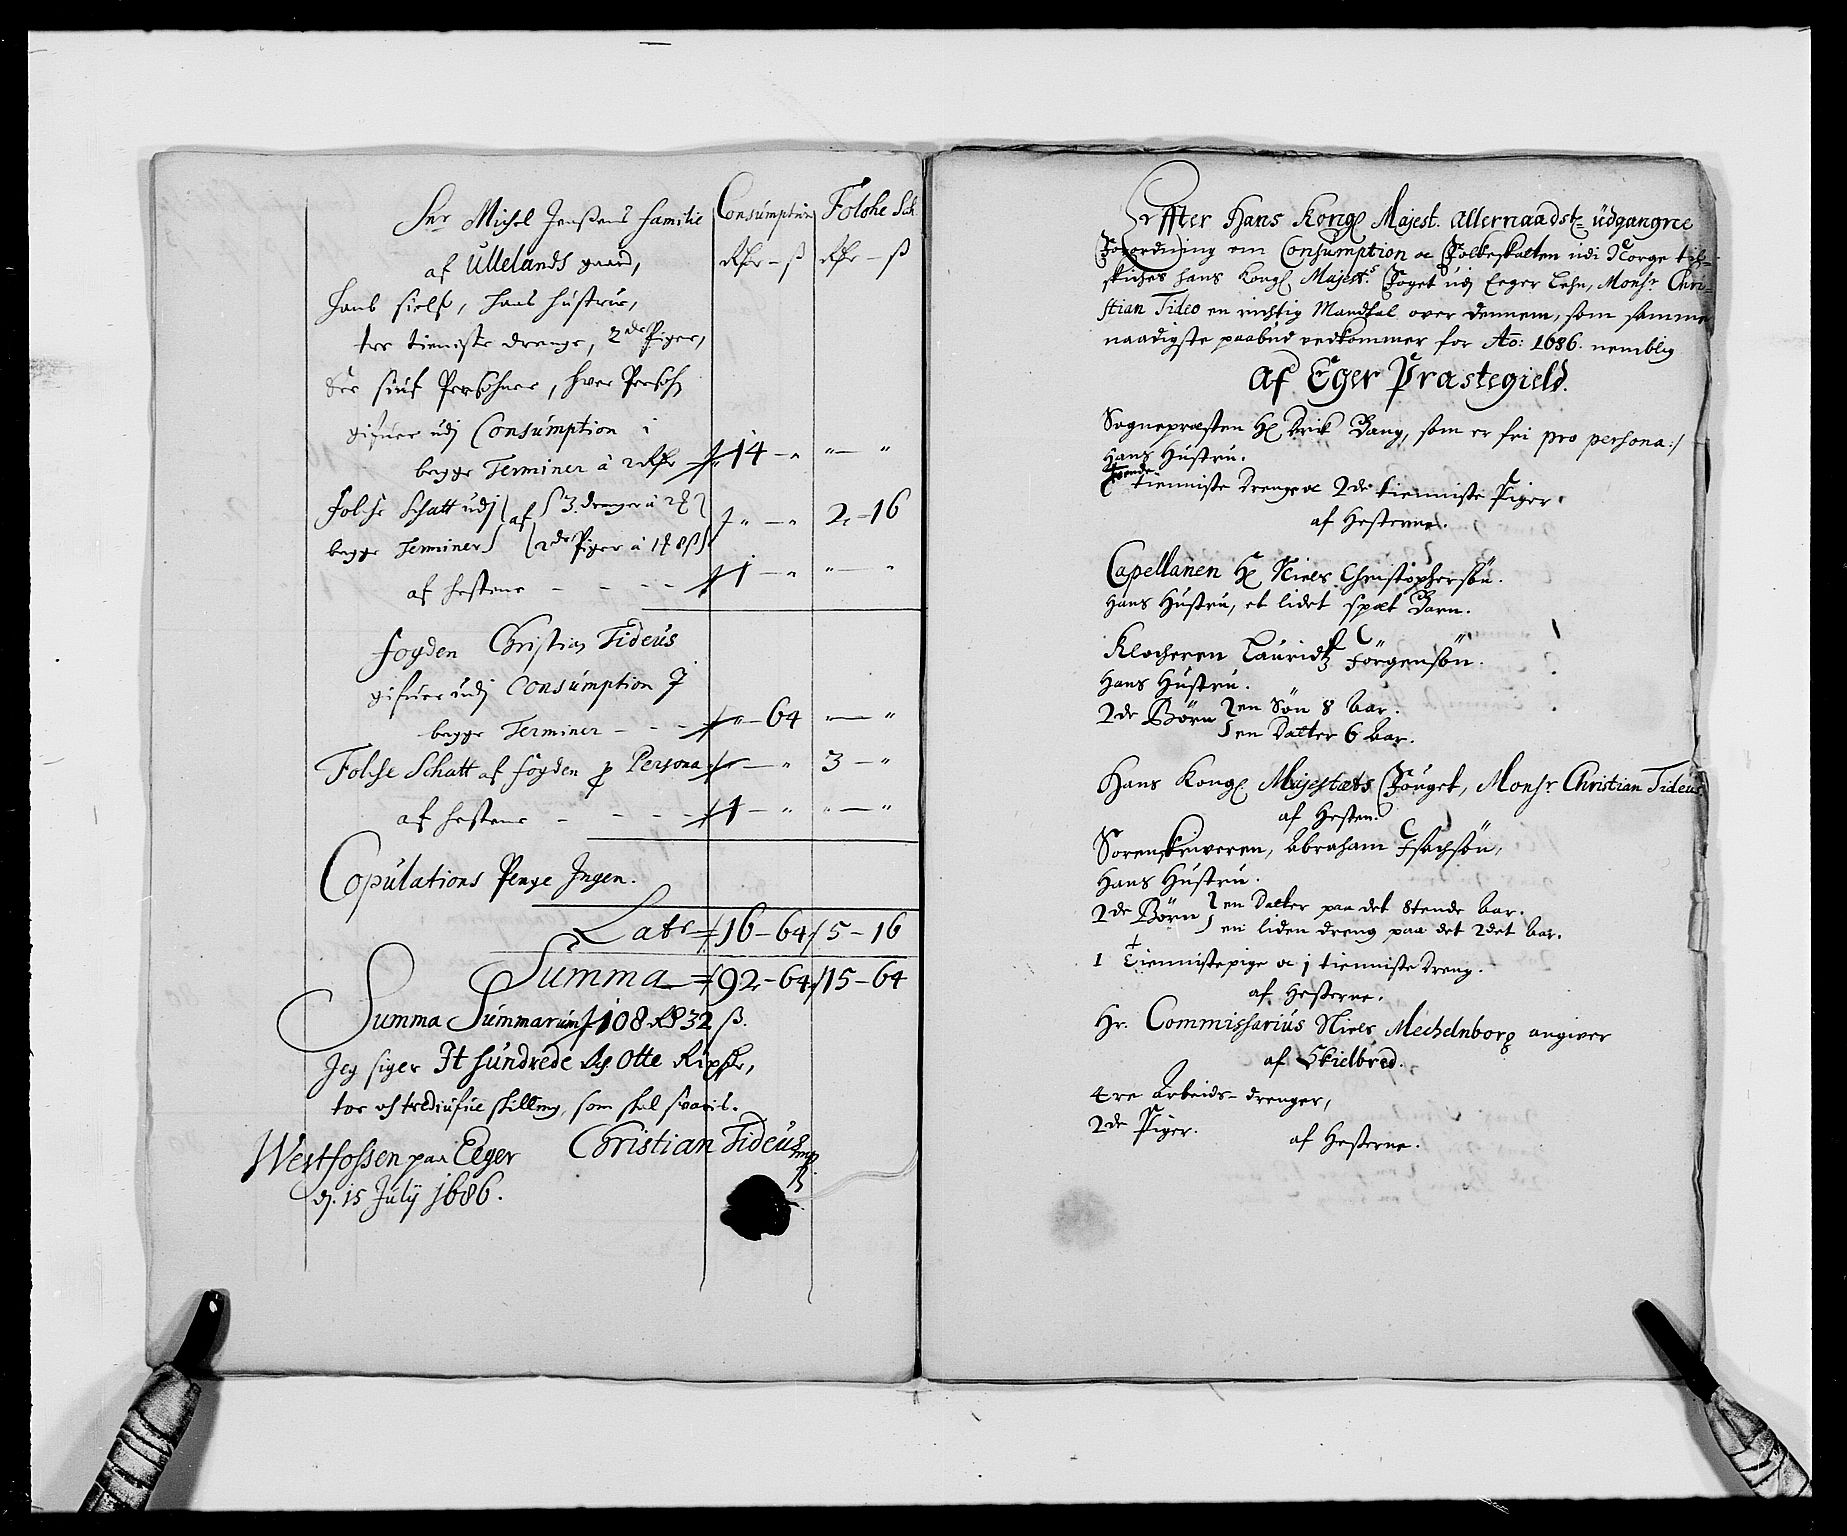 Snr Michel Jenßens familie Consumption Folche Sch
af Ullelands gaard, Rdr – ß Rdr – ß
hand sielf, hans hustrue,
tre tieniste drenge, 2de Piger,
Er siuf Persohner, hver Persohn
gifuer udj Consumption i
begge Terminer à 2 Rdr 14 – „ „ – „
Folche Schatt udj af 3. drenge à 2
begge Terminer 2de Piger à 1 8 ß „ – „ 2 – 16
af hestene - - - - 1 – „ „ – „
fogden Christian Tideus
gifuer udj Consumption
begge Terminer - - „ – 64 „ – „
Folche Schatt af fogden p Persona „ – „ 3 – „
af hestene - - - - 1 – „ „ – „
Copulations Penge Ingen.
Late 16 – 64 / 5 – 16
Summa 92 – 64 / 15 – 64
Summa Summarum 108 R 32 ß.
Jeg siger It hundrede Og Otte Rixdlr,
toe och trediufue skilling, som skal svaris.
Westfossen paa Eeger Christian Tideus mp
dj. 15 Julij 1686.
Effter Hans Kongl Majest. allernaadste udgangne
Forordning om Consumption oc Folkeskatten udi Norge til-
skickes hans Kongl Majests. Foget udj Eeger Lehn, Monsr Chri-
stian Tideo en richtig Mandtal over dennem, som samme
naadigste paabud vedkommer for Ao: 1686. nemblig
Af Eger Præstegield.
Sognepræsten Hr Erik Bang, som er fri pro persona :/
Hans Hustru.
Tvende tienniste drenge oc 2de tienniste Piger.
af Hesterne.
Capellanen Hr Niels Christophersøn.
Hans Hustru, et lidet spæt Barn.
Klocheren Lauridtz Jörgensøn.
Hans Hustru.
2de Børn en Søn 8 Aar.
en Datter 6 Aar.
Hans Kongl Majestæts Fouget, Monsr Christian Tideus
af Hesten.
Sorenskriveren, Abraham Isachsøn,
Hans Hustru.
2de Børn en Datter paa det 8tende Aar.
en liden dreng paa det 2det Aar.
1 tiennistepige oc 1 tienniste dreng.
af Hesterne.
Hr. Commissarius Niels Mechelnborg angiver
af Skielbred.
4re Arbeids-drenger,
2de Piger.
af Hesterne.